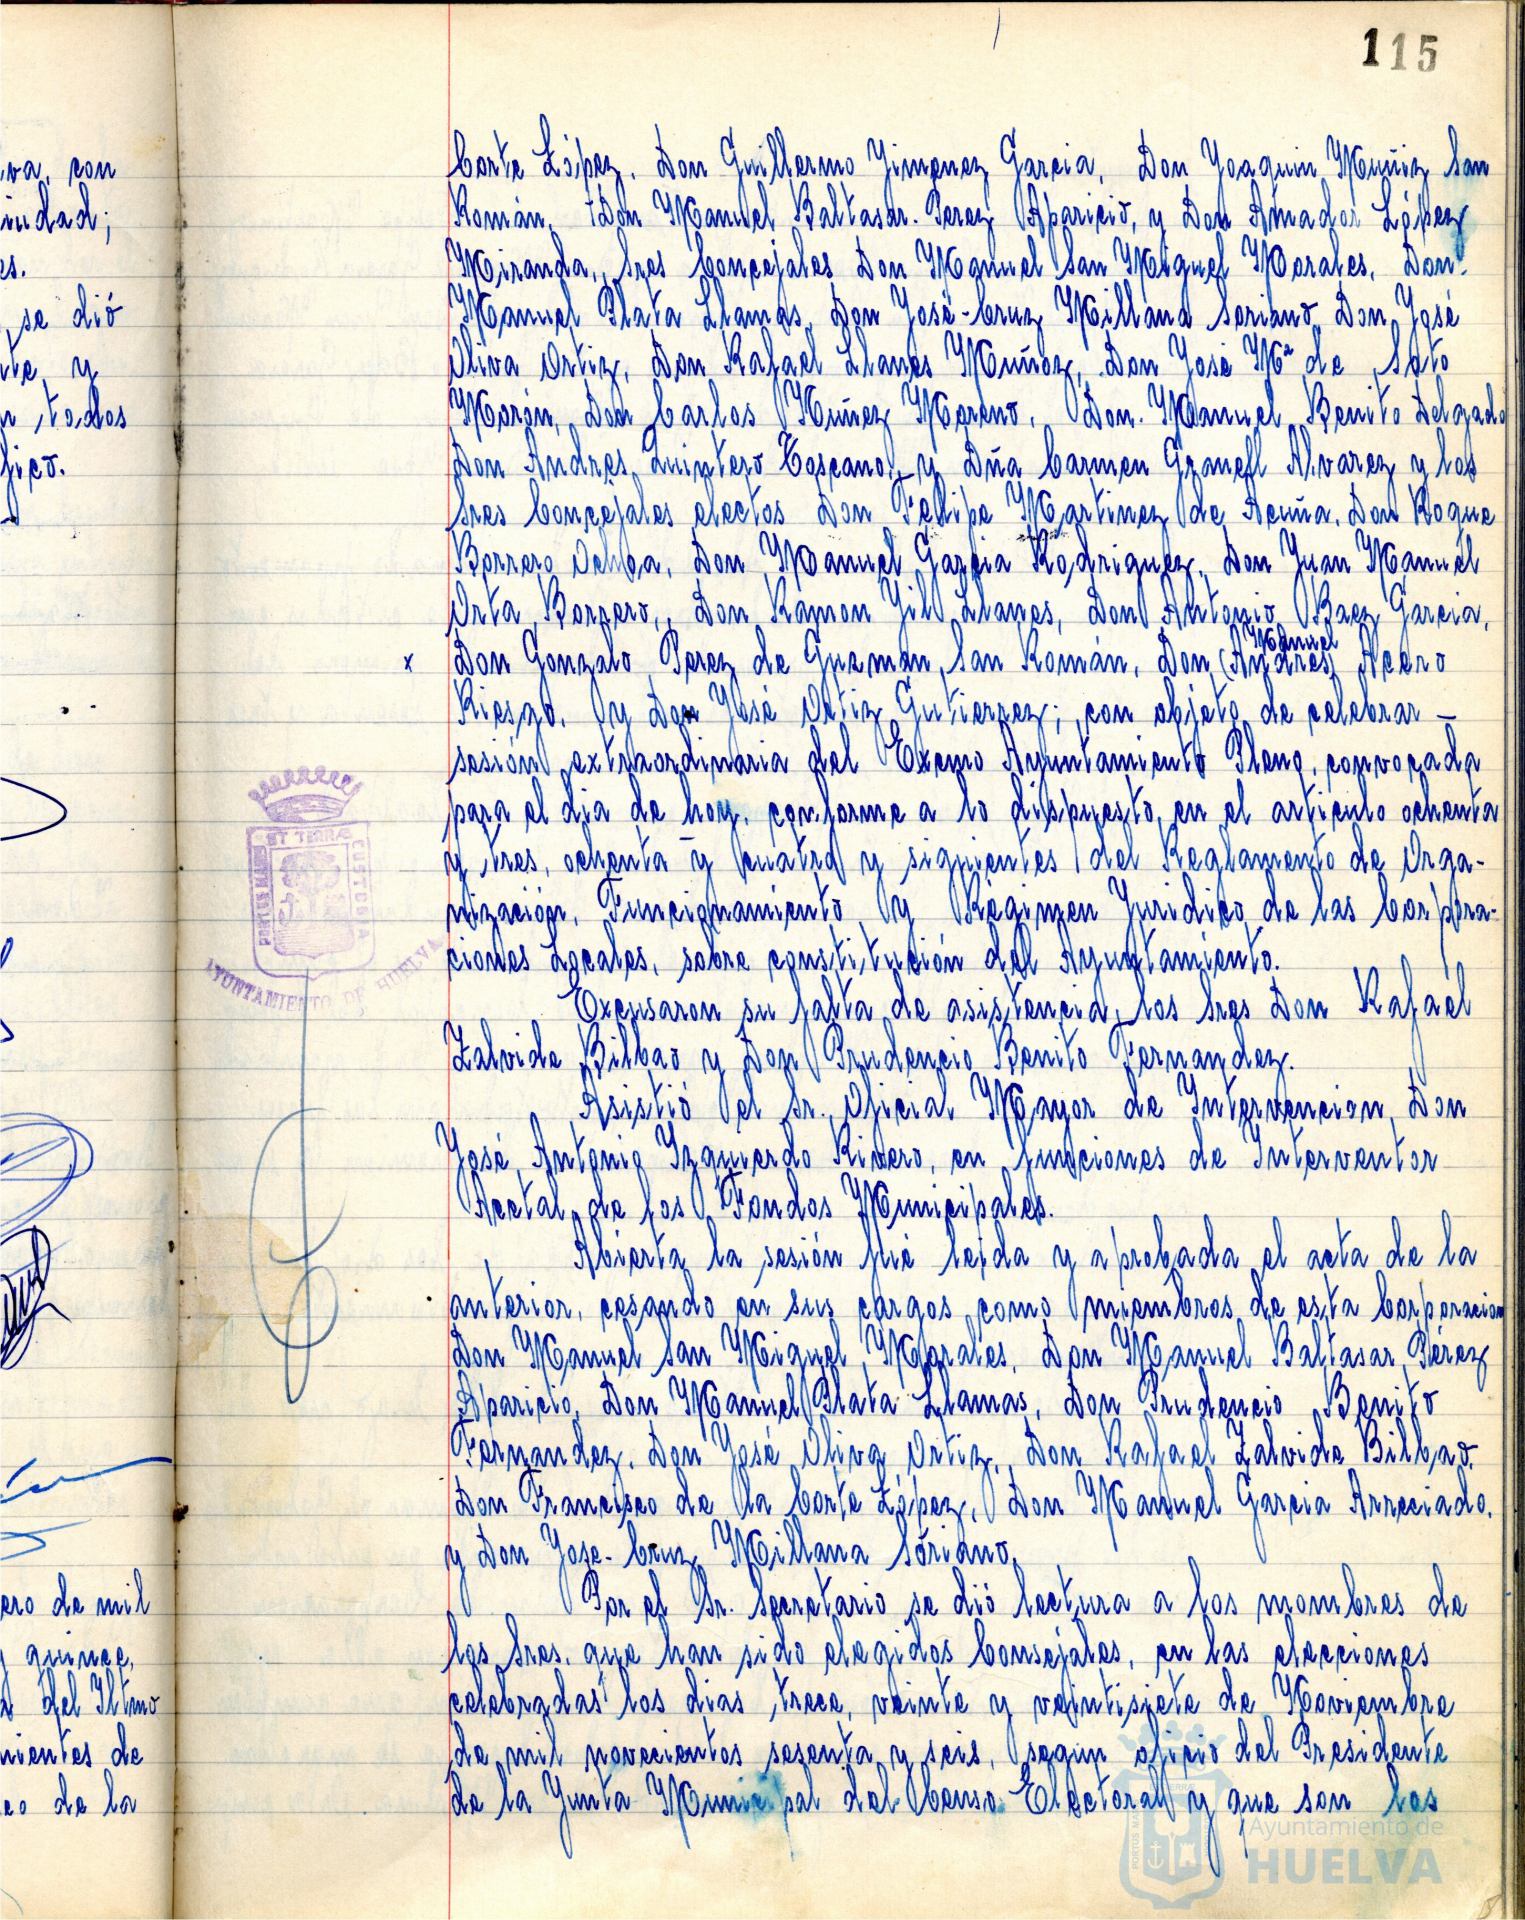 115
va, con
iudad;
es.
, se dió
nte, y
n todos
fico.
ero de mil
y quince,
del Iltmo
nientes de
eo de la
Corte López, Don Guillermo Jimenez Garcia, Don Joaquin Muñiz San
Román, Don Manuel Baltasar Perez Aparicio, y Don Amador López
Miranda, Sres Concejales Don Manuel San Miguel Morales, Don
Manuel Plata Llamas, Don José-Cruz Millana Soriano Don José
Oliva Ortiz, Don Rafael Llanes Muñoz, Don José Mª de Soto
Morón, Don Carlos Nuñez Moreno, Don Manuel Benito Delgado
Don Andres Quintero Toscano, y Dña Carmen Granell Alvarez y los
Sres Concejales electos Don Felipe Martinez de Acuña, Don Roque
Borrero Ochoa, Don Manuel Garcia Rodriguez, Don Juan Manuel
Orta Borrero, Don Ramon Gil Llanes, Don Antonio Baez Garcia,
Manuel
x Don Gonzalo Perez de Guzman San Román, Don (Andres) Acero
Riesgo, y Don José Ortiz Gutierrez; con objeto de celebrar —
sesión extraordinaria del Excmo Ayuntamiento Pleno, convocada
para el dia de hoy, conforme a lo dispuesto en el articulo ochenta
y tres, ochenta y cuatro y siguientes del Reglamento de Orga-
nización, Funcionamiento y Régimen Juridico de las Corpora-
ciones Locales, sobre constitución del Ayuntamiento.
Excusaron su falta de asistencia los Sres Don Rafael
Zalvide Bilbao y Don Prudencio Benito Fernandez.
Asistió el Sr. Oficial Mayor de Intervencion, Don
José Antonio Izquierdo Rivero, en funciones de Interventor
Acctal de los Fondos Municipales.
Abierta la sesión fué leida y aprobada el acta de la
anterior, cesando en sus cargos como miembros de esta Corporacion
Don Manuel San Miguel Morales, Don Manuel Baltasar Pérez
Aparicio, Don Manuel Plata Llamas, Don Prudencio Benito
Fernandez, Don José Oliva Ortiz, Don Rafael Zalvide Bilbao,
Don Francisco de la Corte López, Don Manuel Garcia Arreciado,
y Don Jose-Cruz Millana Soriano.
Por el Sr. Secretario se dió lectura a los nombres de
los Sres. que han sido elegidos Consejales, en las elecciones
celebradas los dias trece, veinte y veintisiete de Noviembre
de mil novecientos sesenta y seis, segun oficio del Presidente
de la Junta Municipal del Censo Electoral y que son los
PORTUS MARIS ET TERRÆ CUSTODIA
AYUNTAMIENTO DE HUELVA
Ayuntamiento de
HUELVA